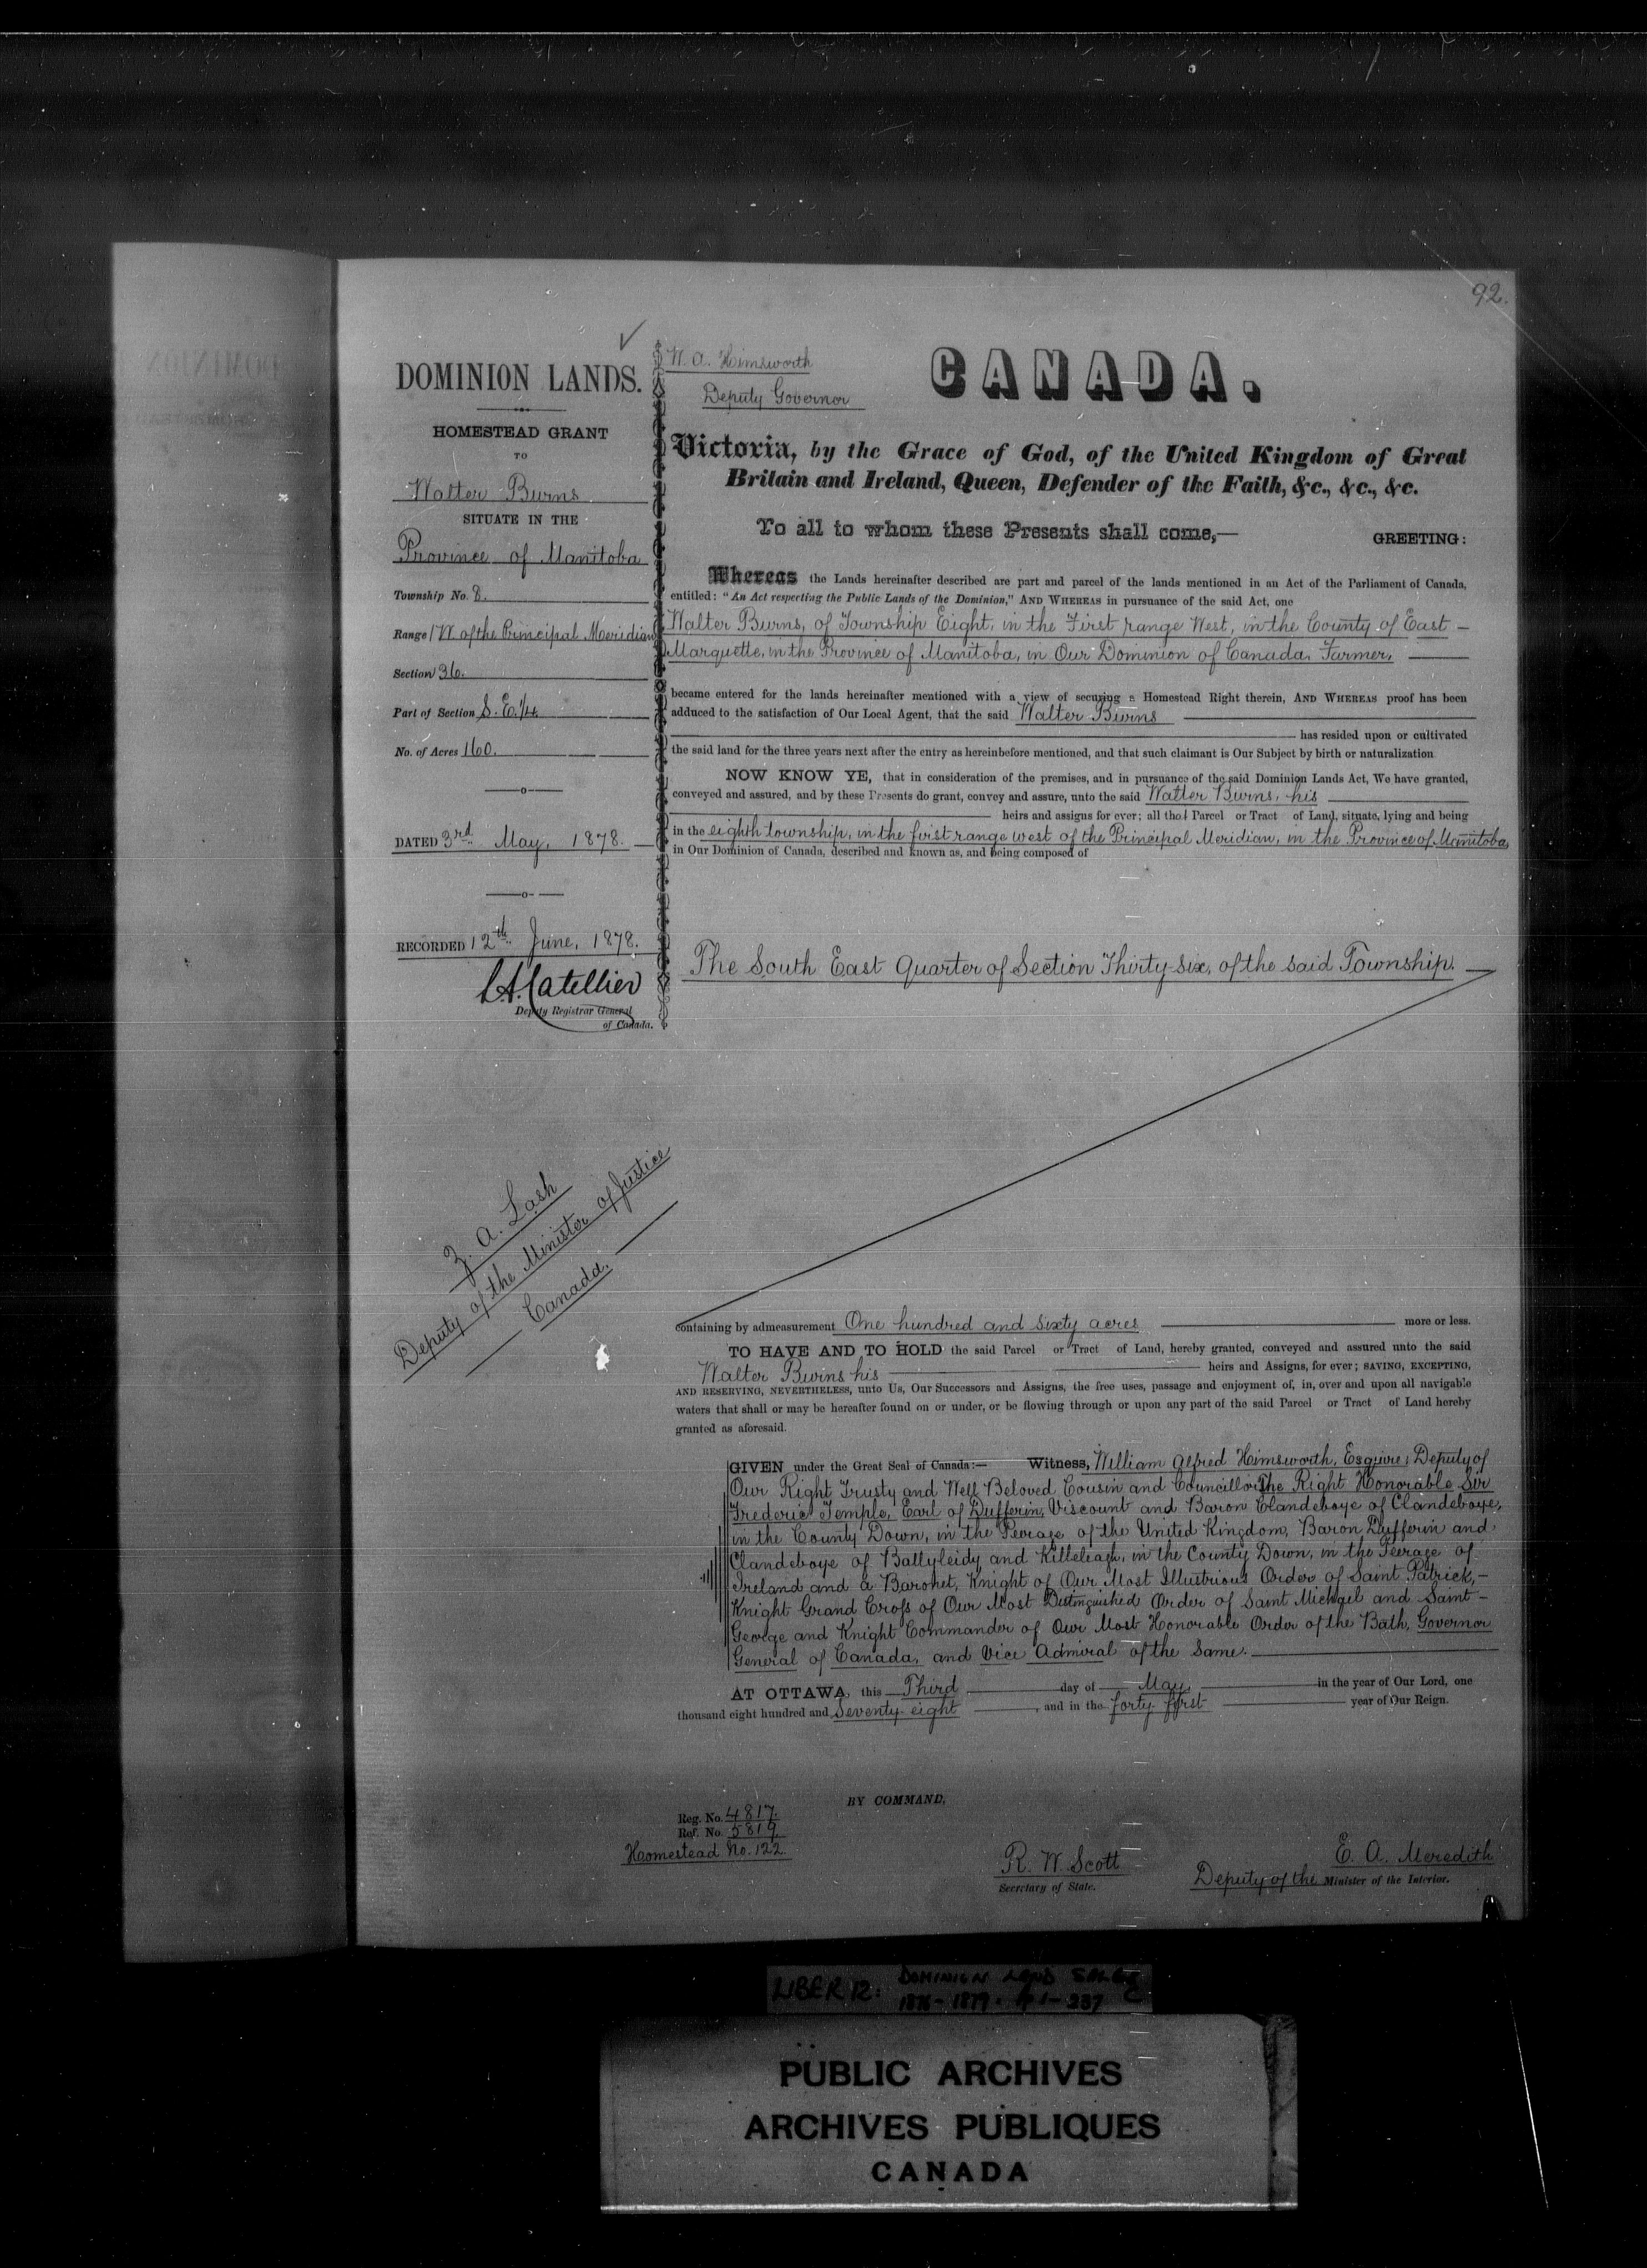 92.
DOMINION LANDS.
HOMESTEAD GRANT
TO
Walter Burns
SITUATE IN THE
Province of Manitoba
Township No. 8.
Range 1 W. of the Principal Meridian
Section 36.
Part of Section S. E. 1/4
No. of Acres 160.
DATED 3rd May, 1878.
RECORDED 12th June, 1878.
L.A. Catellier
Deputy Registrar General
of Canada.
Z. A. Lash
Deputy of the Minister of Justice
Canada.
W. A. Himsworth
Deputy Governor
CANADA.
Victoria, by the Grace of God, of the United Kingdom of Great
Britain and Ireland, Queen, Defender of the Faith, &c., &c., &c.
To all to whom these Presents shall come,—
GREETING:
Whereas the Lands hereinafter described are part and parcel of the lands mentioned in an Act of the Parliament of Canada,
entitled: "An Act respecting the Public Lands of the Dominion," AND WHEREAS in pursuance of the said Act, one
Walter Burns, of Township Eight, in the First range West, in the County of East —
Marquette, in the Province of Manitoba, in Our Dominion of Canada, Farmer,
became entered for the lands hereinafter mentioned with a view of securing a Homestead Right therein, AND WHEREAS proof has been
adduced to the satisfaction of Our Local Agent, that the said Walter Burns
has resided upon or cultivated
the said land for the three years next after the entry as hereinbefore mentioned, and that such claimant is Our Subject by birth or naturalization
NOW KNOW YE, that in consideration of the premises, and in pursuance of the said Dominion Lands Act, We have granted,
conveyed and assured, and by these Presents do grant, convey and assure, unto the said Walter Burns, his
heirs and assigns for ever; all that Parcel or Tract of Land, situate, lying and being
in the eighth township, in the first range west of the Principal Meridian, in the Province of Manitoba,
in Our Dominion of Canada, described and known as, and being composed of
The South East Quarter of Section Thirty-six, of the said Township.
containing by admeasurement One hundred and sixty acres more or less.
TO HAVE AND TO HOLD the said Parcel or Tract of Land, hereby granted, conveyed and assured unto the said
Walter Burns his heirs and Assigns, for ever; SAVING, EXCEPTING,
AND RESERVING, NEVERTHELESS, unto Us, Our Successors and Assigns, the free uses, passage and enjoyment of, in, over and upon all navigable
waters that shall or may be hereafter found on or under, or be flowing through or upon any part of the said Parcel or Tract of Land hereby
granted as aforesaid.
GIVEN under the Great Seal of Canada:— Witness, William Alfred Himsworth, Esquire, Deputy of
Our Right Trusty and Well Beloved Cousin and Councillor The Right Honorable Sir
Frederic Temple, Earl of Dufferin, Viscount and Baron Clandeboye of Clandeboye,
in the County Down, in the Peerage of the United Kingdom, Baron Dufferin and
Clandeboye of Ballyleidy and Killeleagh, in the County Down, in the Peerage of
Ireland and a Baronet, Knight of Our Most Illustrious Order of Saint Patrick, —
Knight Grand Cross of Our Most Distinguished Order of Saint Michael and Saint —
George and Knight Commander of Our Most Honorable Order of the Bath, Governor
General of Canada, and Vice Admiral of the same.
AT OTTAWA, this Third day of May, in the year of Our Lord, one
thousand eight hundred and Seventy-eight, and in the forty first year of Our Reign.
BY COMMAND,
Reg. No. 4817.
Ref. No. 5819
Homestead No. 122.
R. W. Scott
Secretary of State.
E. A. Meredith
Deputy of the Minister of the Interior.
LIBER 12: DOMINION LAND SALES
1878-1879. p 1-237
PUBLIC ARCHIVES
ARCHIVES PUBLIQUES
CANADA